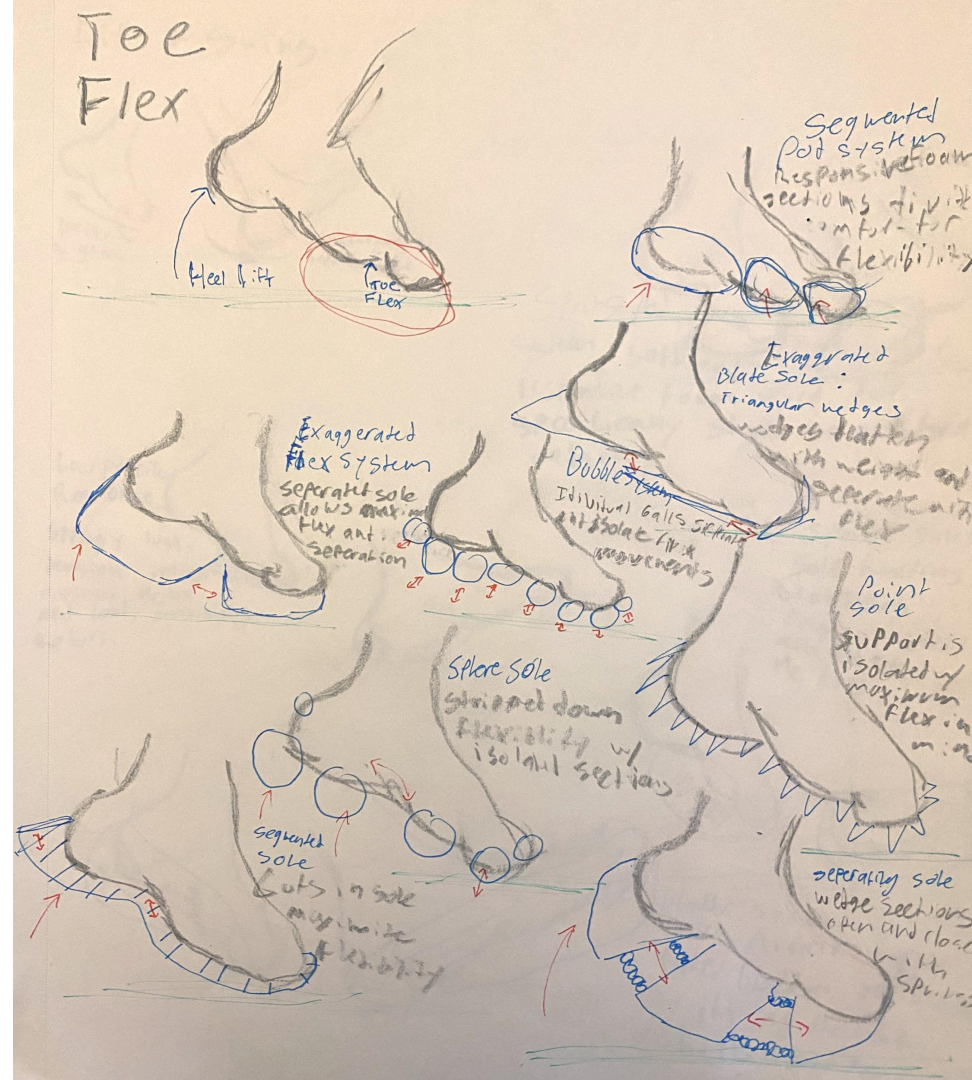 Toe
Flex
Heel lift
Toe
Flex
Segmented
Pod system
Responsive foam
sections
comfor
flexibility
Exaggerated
Blade Sole:
Triangular wedges
wedges
with weight and
flex
Exaggerated
Flex System
seperated sole
allows maxim
flex and
seperation
Bubble System
movements
Point
Sole
support is
isolated w/
maximum
flex in
min
Sphere Sole
stripped down
flexiblity w/
isolated sections
segmented
sole
Cuts in sole
maximize
flexibility
seperating sole
wedge sections
open and close
with
springs